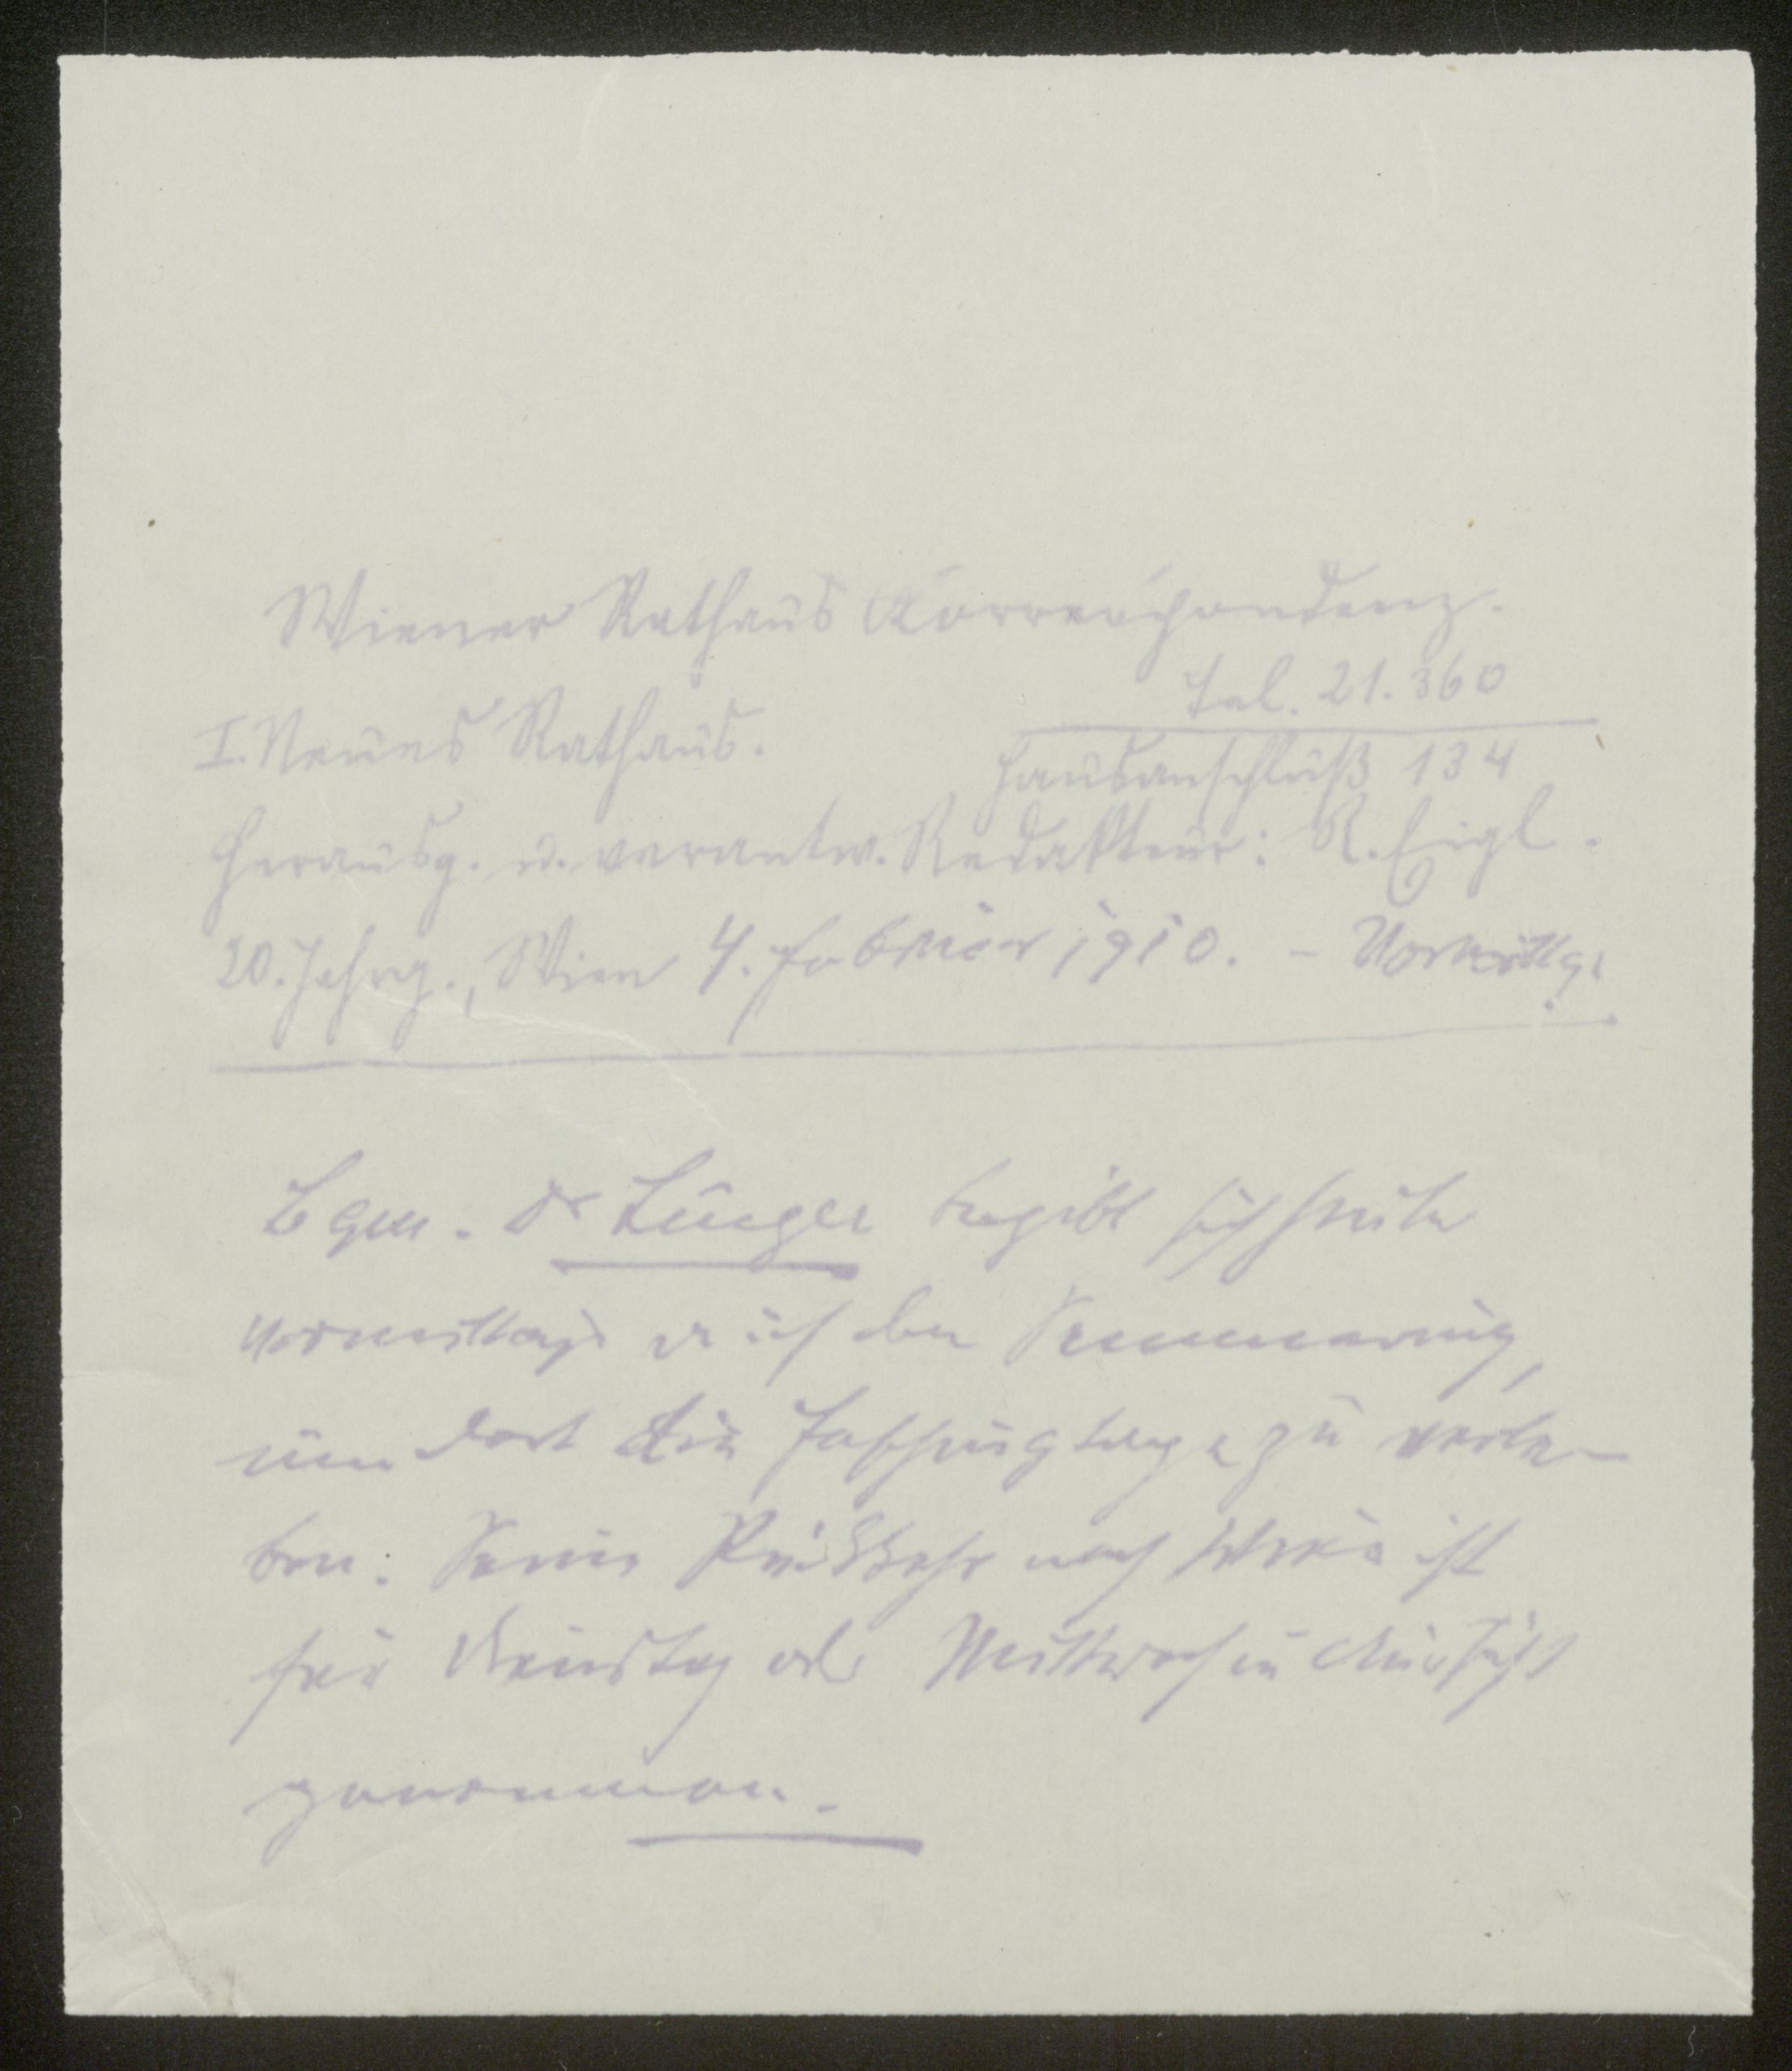 Wiener Rathaus Korrespondenz.
Tel. 21.360
I. Neues Rathaus.
Hausanschluß 134
Herausg. u. verantw. Redakteur: R. Eigl.
20. Jahrg., Wien 4. Februar 1910. – Vormittgs
Bgm. Dr Lueger begibt sich heute
vormittags auf den Semmering,
um dort die Faschingtage zu verle-
ben. Seine Rückkehr nach Wien ist
für Dienstag oder Mittwoch in Aussicht
genommen.